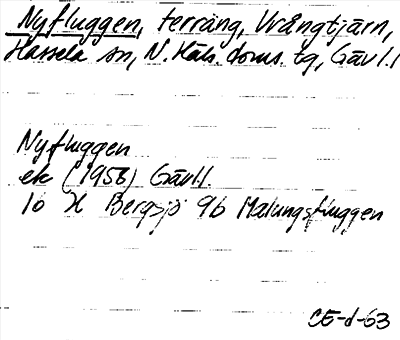 Nyfluggen, terräng, Vrångtjärn,
Hassela sn, N. Häls. doms. tg, Gävl.l
Nyfluggen
ek (1958) Gävl.l.
10 H Bergsjö 9b Malungsfluggen
CE-d-63